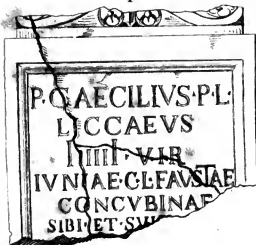 P·CAECILIVS·P·L·
LICCAEVS
IIIIII·VIR
IVNIAE·C·L·FAVSTAE
CONCVBINAE
SIBI·ET·